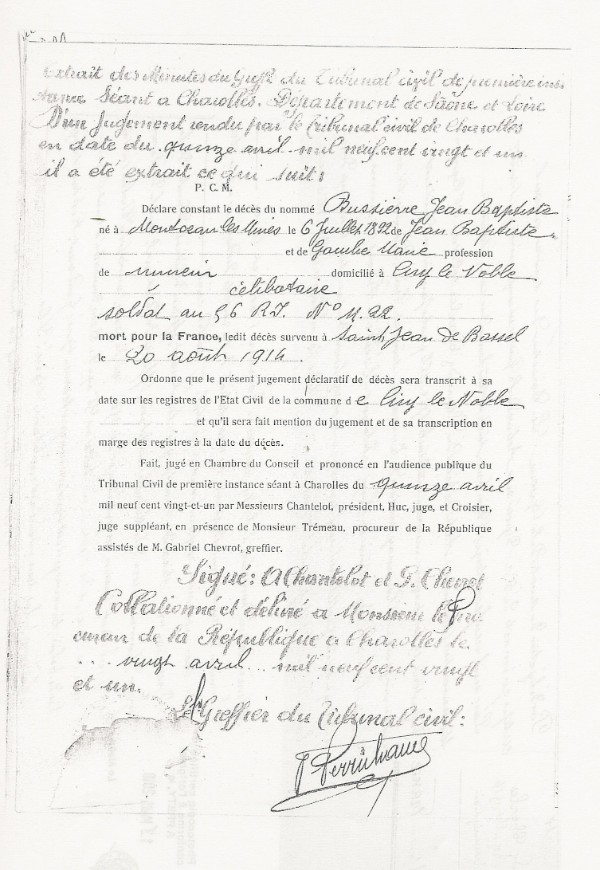 Extrait des Minutes du Greffe du Tribunal civil de première ins
tance Séant a Charolles. Département de Saône et Loire
D'un Jugement rendu par le tribunal civil de Charolles
en date du quinze avril mil neuf cent vingt et un
il a été extrait ce qui suit :
P. C. M.
Déclare constant le décès du nommé Bussierre Jean Baptiste
né à Montceau les Mines le 6 Juillet 1892 de Jean Baptiste
et de Marie profession
de mineur domicilié à Ciry le Noble
célibataire
soldat au 56 R.I. N°
mort pour la France, ledit décès survenu à Saint Jean de Bassel
le 20 août 1914.
Ordonne que le présent jugement déclaratif de décès sera transcrit à sa
date sur les registres de l'Etat Civil de la commune de Ciry le Noble
et qu'il sera fait mention du jugement et de sa transcription en
marge des registres à la date du décès.
Fait, jugé en Chambre du Conseil et prononcé en l'audience publique du
Tribunal Civil de première instance séant à Charolles du quinze avril
mil neuf cent vingt-et-un par Messieurs Chantelot, président, Huc, juge, et Croisier,
juge suppléant, en présence de Monsieur Trémeau, procureur de la République
assistés de M. Gabriel Chevrot, greffier.
Signé : A Chantelot et G. Chevrot
Collationné et délivré a Monsieur le Pro
cureur de la République a Charolles le
... vingt avril ... mil neuf cent vingt
et un.
Le Greffier du Tribunal civil :